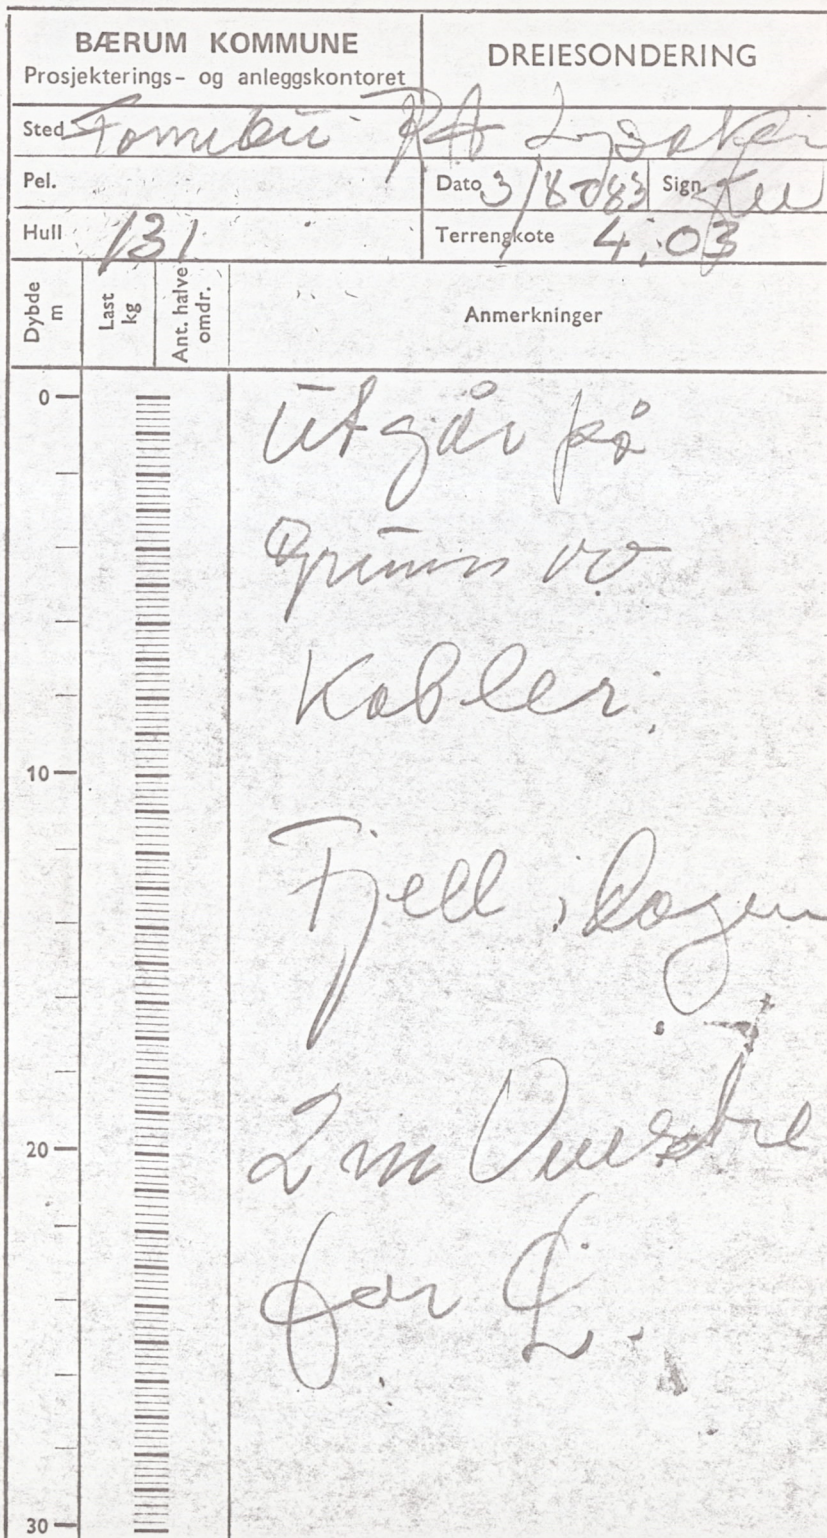 BÆRUM KOMMUNE
Prosjekterings- og anleggskontoret
DREIESONDERING
Sted Fornebu RA Lysaker
Pel.
Dato 3/8-83
Sign.
Hull 131
Terrengkote 4.03
Dybde m
Last kg
Ant. halve omdr.
Anmerkninger
0
10
20
30
Utgår på
Grunn av
Kabler.
Fjell i dagen
2 m Venstre
for ℄.